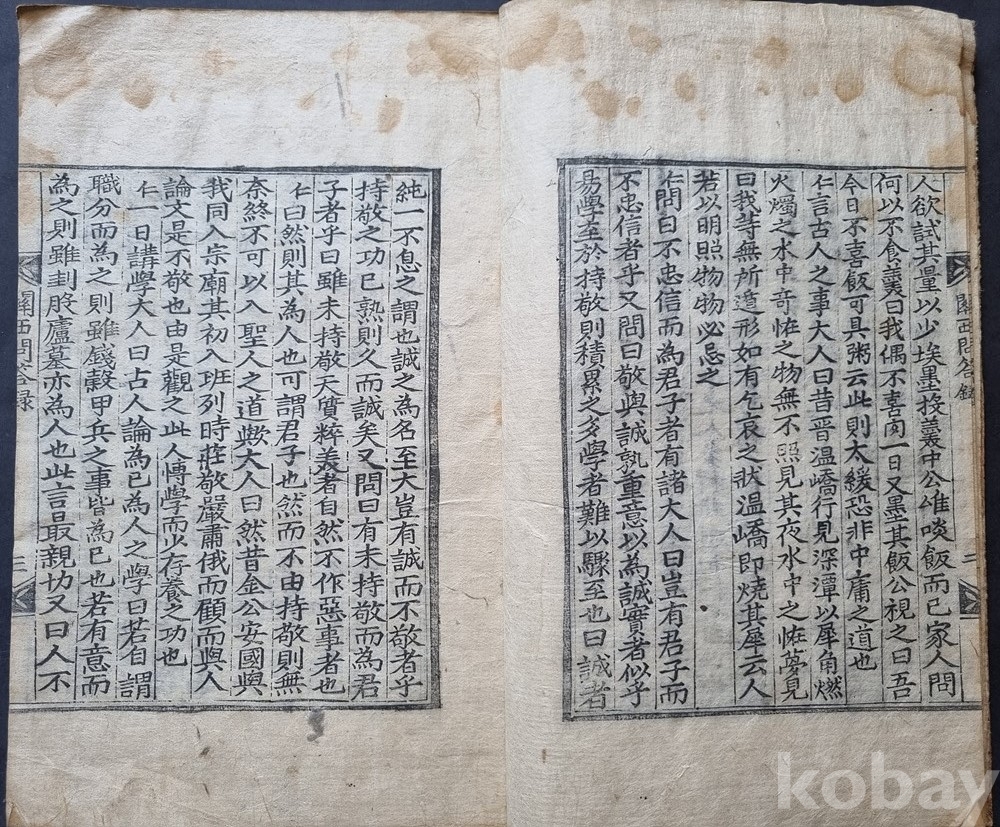 關西問答錄
二
人欲試其量以少埃墨投羹中公唯啖飯而已家人問
何以不食羹曰我偶不喜肉一日又墨其飯公視之曰吾
今日不喜飯可具粥云此則太緩恐非中庸之道也
仁言古人之事大人曰昔晋温嶠行見深潭以犀角燃
火燭之水中奇恠之物無不照見其夜水中之恠夢見
曰我等無所遁形如有乞哀之狀温嶠即燒其犀云人
若以明照物物必忌之
仁問曰不忠信而為君子者有諸大人曰豈有君子而
不忠信者乎又問曰敬與誠孰重意以為誠實者似乎
易學至於持敬則積累之多學者難以驟至也曰誠者
純一不息之謂也誠之為名至大豈有誠而不敬者乎
持敬之功已熟則久而誠矣又問曰有未持敬而為君
子者乎曰雖未持敬天質粹美者自然不作惡事者也
仁曰然則其為人也可謂君子也然而不由持敬則無
奈終不可以入聖人之道歟大人曰然昔金公安國與
我同入宗廟其初入班列時莊敬嚴肅俄而顧而與人
論文是不敬也由是觀之此人博學而少存養之功也
仁一日講學大人曰古人論為己為人之學曰若自謂
職分而為之則雖錢穀甲兵之事皆為己也若有意而
為之則雖刲股廬墓亦為人也此言最親切又曰人不
關西問答錄
三
kobay